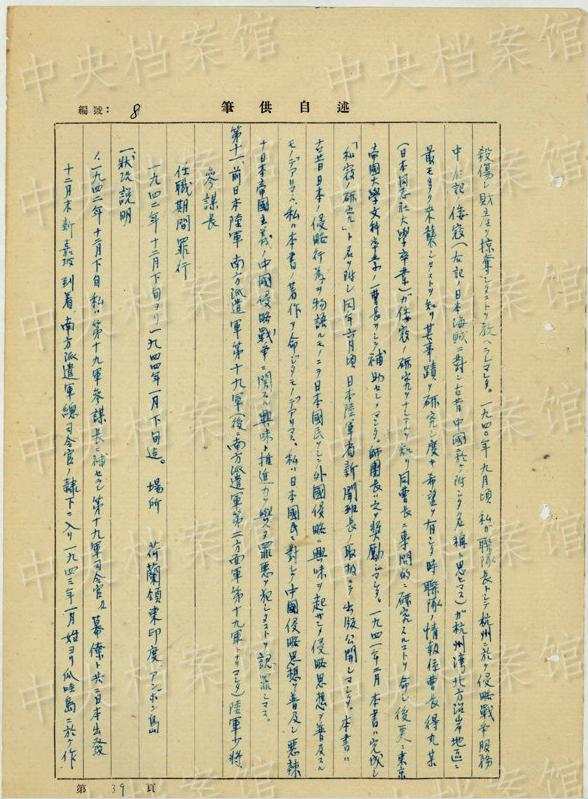 編號: 8
筆供自述
殺傷シ財産ヲ掠奪シタコトヲ教ヘラレマシタ。一九四〇年九月頃 私ガ聯隊長トシテ杭州ニ於テ侵略戰爭服務
中 倭寇(右記ノ日本海賊ニ對シ古昔中國ガ附シタ名稱ト思ヒマス)ガ杭州灣北方沿岸地區ニ
最モ多ク來襲シタコトヲ知リ其事蹟ヲ研究シ度キ希望ヲ有シ 時 聯隊ノ情報係曹長 得丸某
(日本同志社大學卒業)ガ倭寇ノ研究 ヲ知リ同曹長ニ專門的ニ研究スルコトヲ命シ後更ニ東京
帝國大學文科卒業ノ一曹長ヲシテ補助セシメマシタ。師團長ハ之ヲ奬勵シマシタ。一九四一年二月本書ハ完成シ
「倭寇ノ研究」ト名ヲ附シ同年 月頃 日本陸軍省新聞班長 取扱 出版公開シマシタ。本書ハ
古昔日本ノ侵略行爲ヲ物語ルモノニテ日本國民ヲシテ外國侵略ニ興味ヲ起サセ侵略思想ヲ普及スル
モノデアリマス。私ハ本書ノ著作ヲ命ジタモノデアリマス。私ハ日本國民ニ對シテ中國侵略思想ヲ普及シ惡辣
ナ日本帝國主義ノ中國侵略戰爭ニ關スル興味ト推進力ヲ與ヘタ罪惡ヲ犯シタコトヲ認罪シマス。
第十一、前日本陸軍 南方派遣軍第十九軍(後、南方派遣軍第二方面軍第十九軍トナリマシタ)陸軍少將
參謀長
任職期間罪行
一九四二年十二月下旬ヨリ一九四四年一月下旬迄。 場所 荷蘭領東印度「アンボン」島
一、狀況説明
1、一九四二年十二月下旬 私ハ第十九軍參謀長ニ補セラレ第十九軍司令官及幕僚ト共ニ日本出發
十二月末新嘉坡到着、南方派遣軍總司令官ノ隷下ニ入リ一九四三年一月始ヨリ爪哇島ニ於テ作
第 39 頁
中央档案馆